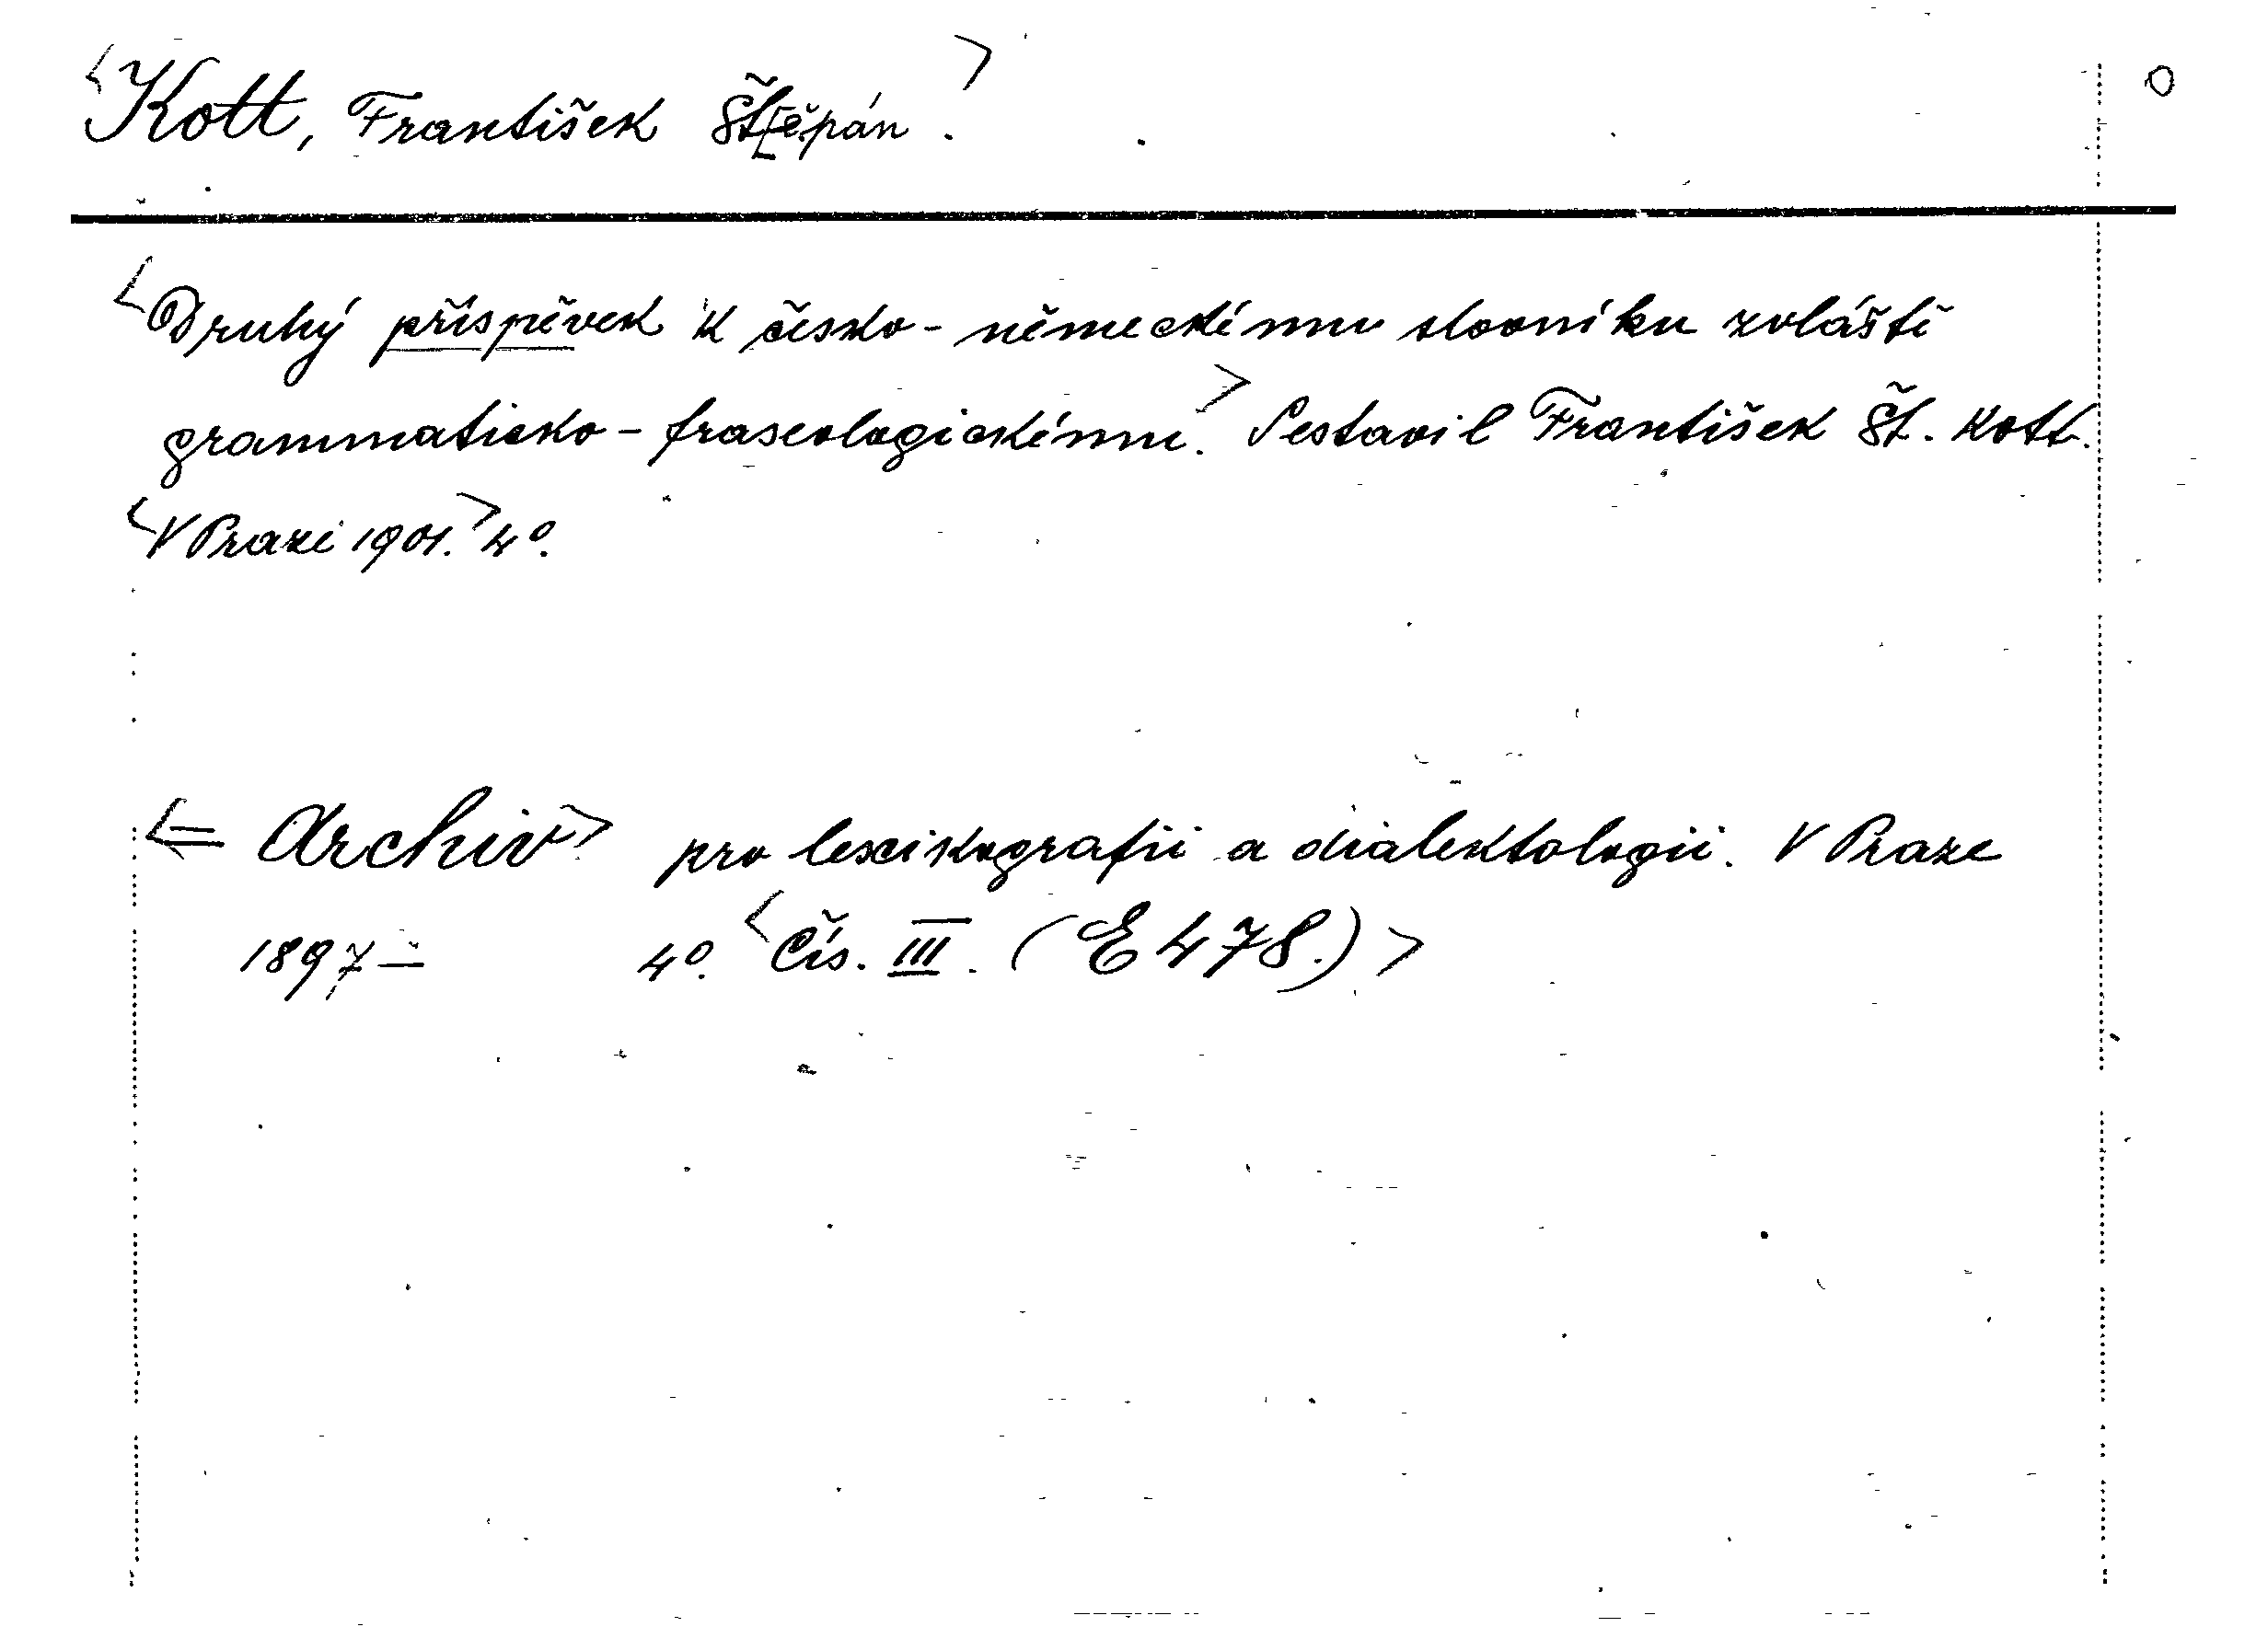 <Kott, František Št[ěpán.> O
<Druhý příspěvek k česko-německému slovníku zvláště
grammaticko-fraseologickému.> Sestavil František Št. Kott.
<V Praze 1901.> 4°.
<= Archiv> pro lexikografii a dialektologii. V Praze
1897– 4°. <Čís. III. (E 478.)>